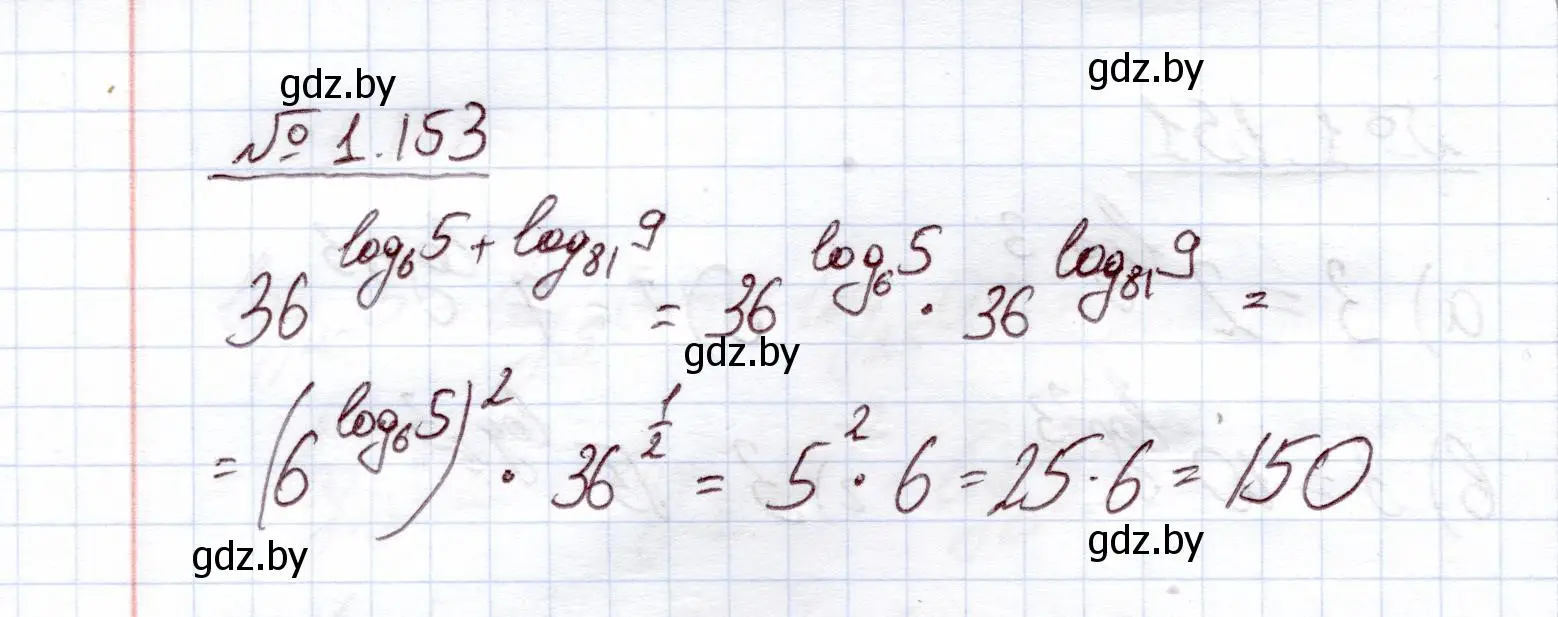 gdz.by
gdz.by
№ 1.153
36^{log₆5 + log₈₁9} = 36^{log₆5} · 36^{log₈₁9} =
gdz.by
= (6^{log₆5})² · 36^{1/2} = 5² · 6 = 25 · 6 = 150
gdz.by
gdz.by